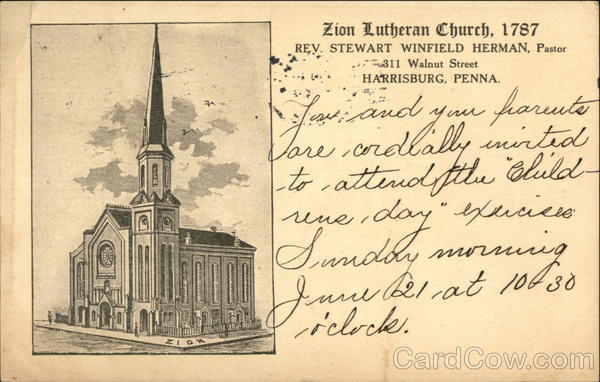 Zion Lutheran Church, 1787
REV. STEWART WINFIELD HERMAN, Pastor
311 Walnut Street
HARRISBURG, PENNA.
You and your parents
are cordially invited
to attend the "Child-
rens day" exercises
Sunday morning
June 21 at 10-30
o'clock.
ZION
CardCow.com